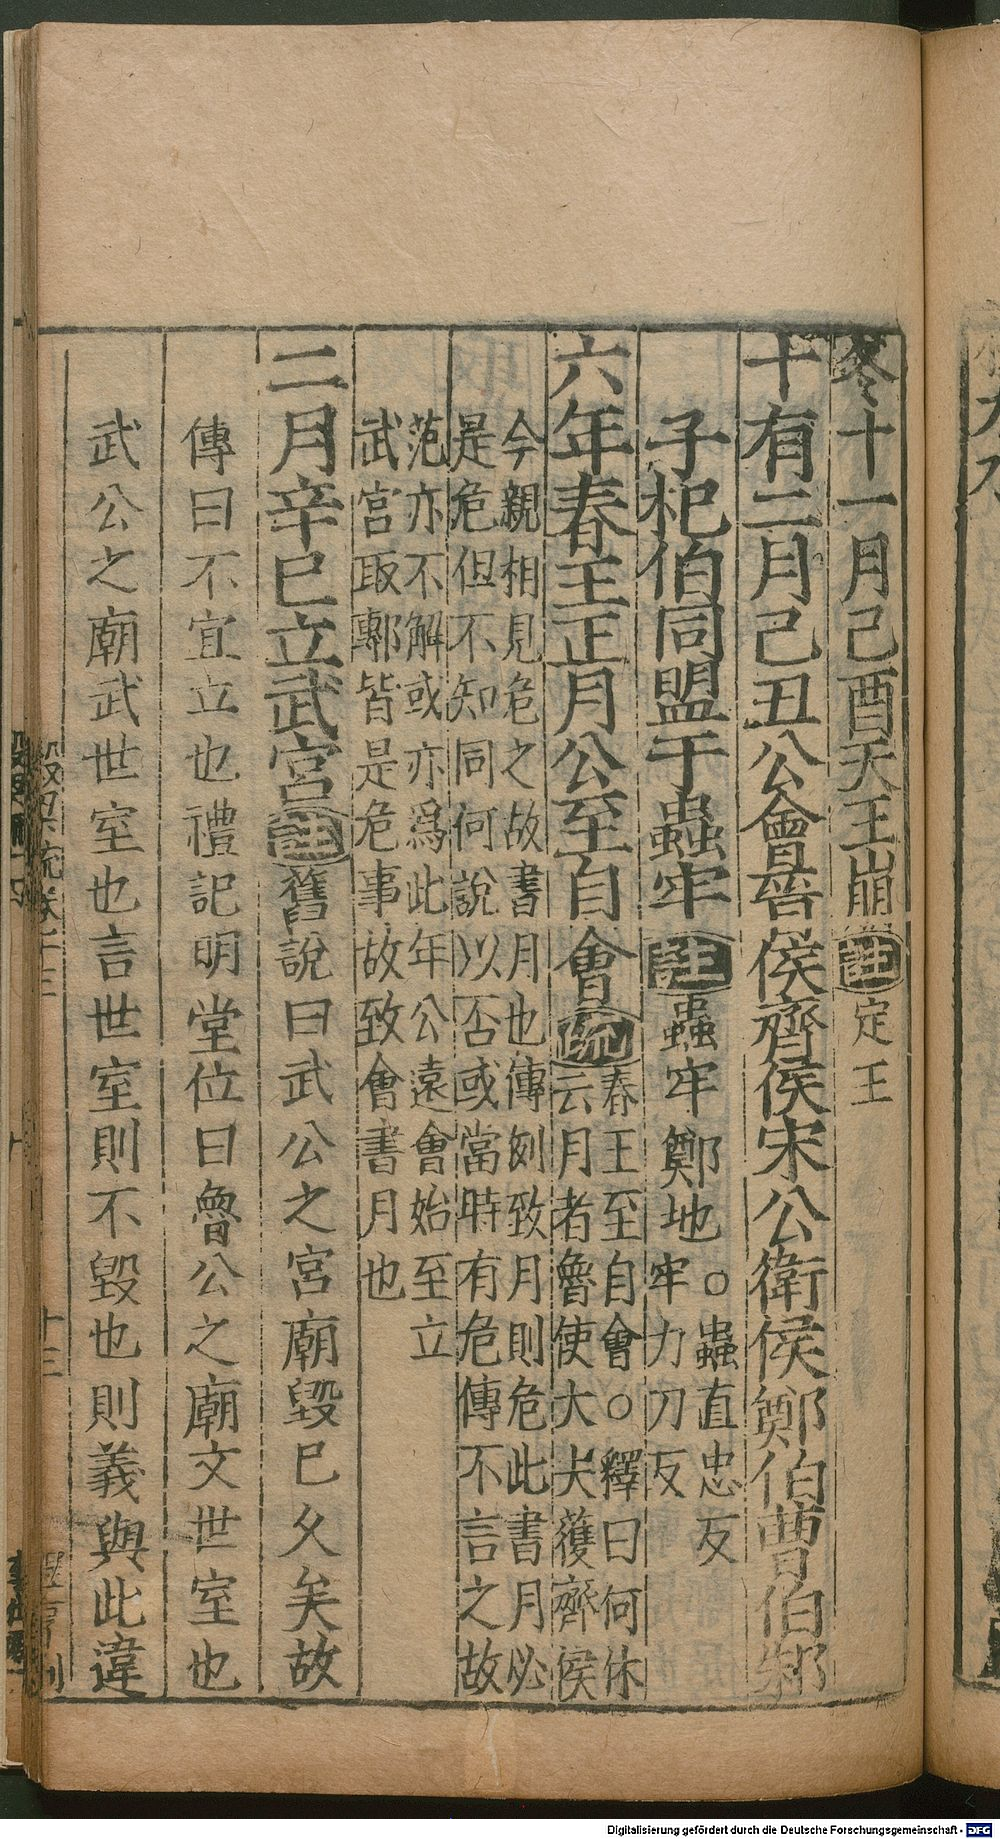 冬十一月己酉天王崩註定王
十有二月己丑公會晉侯齊侯宋公衛侯鄭伯曹伯邾
子杞伯同盟于蟲牢註蟲牢鄭地○蟲直忠反
牢力刀反
六年春王正月公至自會疏春王至自會○釋曰何休
云月者魯使大夫獲齊侯
今親相見危之故書月也傳例致月則危此書月必
是危但不知同何說以否或當時有危傳不言之故
范亦不解或亦爲此年公遠會始至立
武宮取鄟皆是危事故致會書月也
二月辛巳立武宮註舊說曰武公之宮廟毀已久矣故
傳曰不宜立也禮記明堂位曰魯公之廟文世室也
武公之廟武世室也言世室則不毀也則義與此違
Digitalisierung gefördert durch die Deutsche Forschungsgemeinschaft - DFG